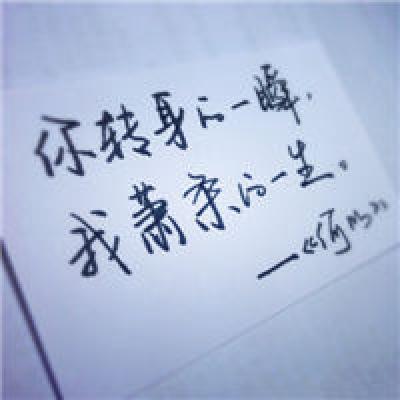 你转身的一瞬.
我萧条的一生。
—《何以》